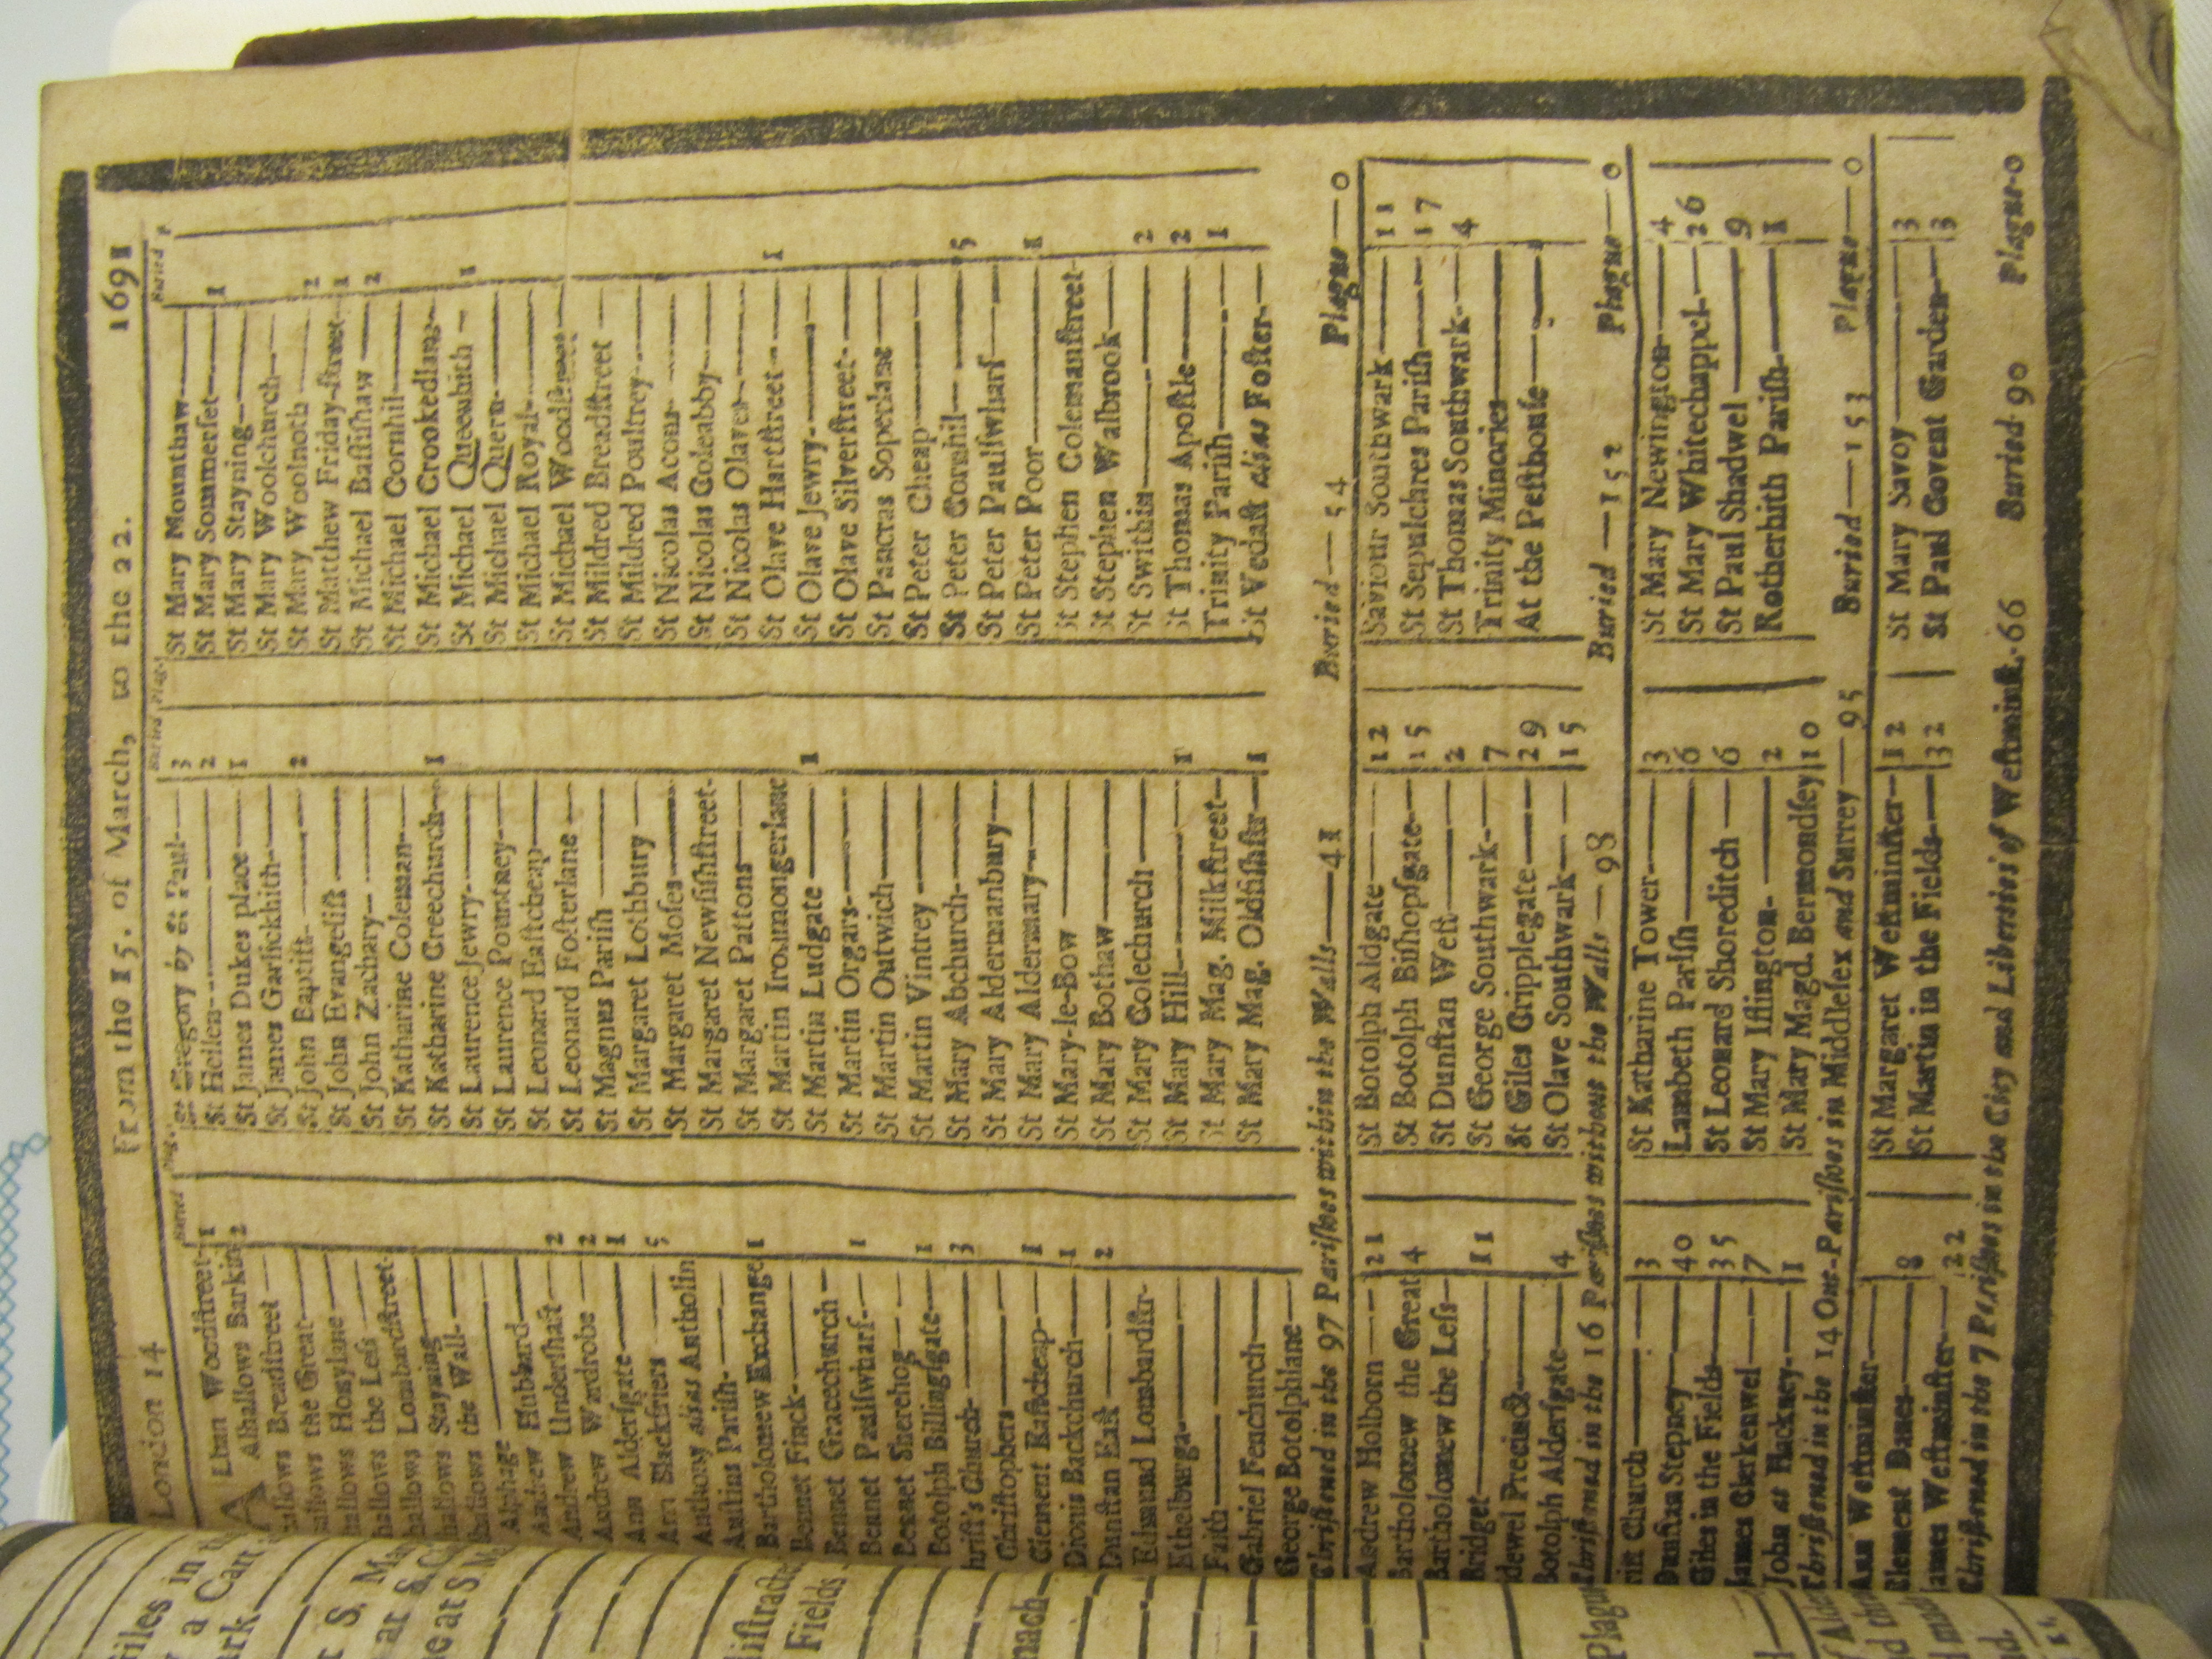 London 14 From the 15. of March, to the 22. 1691
Buried Plag. Buried Plag. Buried P.
Alban Woodstreet 1
Alhallows Barkin 2
Breadstreet
the Great
Honylane
the Less
Lombardstreet
Stayning
the Wall
Alphage
Andrew Hubbard
Andrew Undershaft 2
Andrew Wardrobe 2
Ann Aldersgate 1
Ann Blackfriers 5
Anthony alias Antholin
Austins Parish
Bartholomew Exchange 1
Bennet Finck
Bennet Gracechurch
Bennet Paulswharf 1
Bennet Sherehog
Botolph Billingsgate 1
Christ's Church 3
Christophers
Clement Eastcheap 1
Dionis Backchurch 1
Dunstan East 2
Edmund Lombardstr.
Ethelburga
Faith
Gabriel Fenchurch
George Botolphlane
St Gregory by St Paul 3
St Hellen 2
St James Dukes place 1
St James Garlickhith
St John Baptist 2
St John Evangelist
St John Zachary
St Katharine Coleman
St Katharine Creechurch 1
St Laurence Jewry
St Laurence Pountney
St Leonard Eastcheap
St Leonard Fosterlane
St Magnus Parish
St Margaret Lothbury
St Margaret Moses
St Margaret Newfishstreet
St Margaret Pattons
St Martin Ironmongerlane
St Martin Ludgate 1
St Martin Orgars
St Martin Outwich
St Martin Vintrey
St Mary Abchurch
St Mary Aldermanbury
St Mary Aldermary
St Mary-le-Bow
St Mary Bothaw
St Mary Colechurch
St Mary Hill 1
St Mary Mag. Milkstreet
St Mary Mag. Oldfishstr 1
St Mary Mounthaw
St Mary Sommerset 1
St Mary Stayning
St Mary Woolchurch
St Mary Woolnoth 2
St Matthew Friday-street 1
St Michael Bassishaw 2
St Michael Cornhil
St Michael Crookedlane
St Michael Queenhith 1
St Michael Quern
St Michael Royal
St Michael Woodstreet
St Mildred Breadstreet
St Mildred Poultrey
St Nicolas Acons
St Nicolas Coleabby
St Nicolas Olaves
St Olave Hartstreet 1
St Olave Jewry
St Olave Silverstreet
St Pancras Soperlane
St Peter Cheap
St Peter Cornhil 5
St Peter Paulswharf
St Peter Poor 1
St Stephen Colemanstreet
St Stephen Walbrook
St Swithin 2
St Thomas Apostle 2
Trinity Parish 1
St Vedast alias Foster
Christned in the 97 Parishes within the Walls 41 Buried 54 Plague 0
Andrew Holborn 21
Bartholomew the Great 4
Bartholomew the Less
Bridget 11
Bridewel Precinct
Botolph Aldersgate 4
St Botolph Aldgate 12
St Botolph Bishopsgate 15
St Dunstan West 2
St George Southwark 7
St Giles Cripplegate 29
St Olave Southwark 15
Saviour Southwark 11
St Sepulchres Parish 17
St Thomas Southwark 4
Trinity Minories
At the Pesthouse
Christned in the 16 Parishes without the Walls 98 Buried 152 Plague 0
Christ Church 3
Dunstan Stepney 40
Giles in the Fields 35
James Clerkenwel 7
John at Hackney 1
St Katharine Tower 3
Lambeth Parish 6
St Leonard Shoreditch 6
St Mary Islington 2
St Mary Magd. Bermondsey 10
St Mary Newington 4
St Mary Whitechappel 26
St Paul Shadwel 9
Rotherhith Parish 1
Christned in the 14 Out-Parishes in Middlesex and Surrey 95 Buried 153 Plague 0
Ann Westminster
Clement Danes 8
James Westminster 22
St Margaret Westminster 12
St Martin in the Fields 32
St Mary Savoy 3
St Paul Covent Garden 3
Christned in the 7 Parishes in the City and Liberties of Westminst. 66 Buried 90 Plague 0